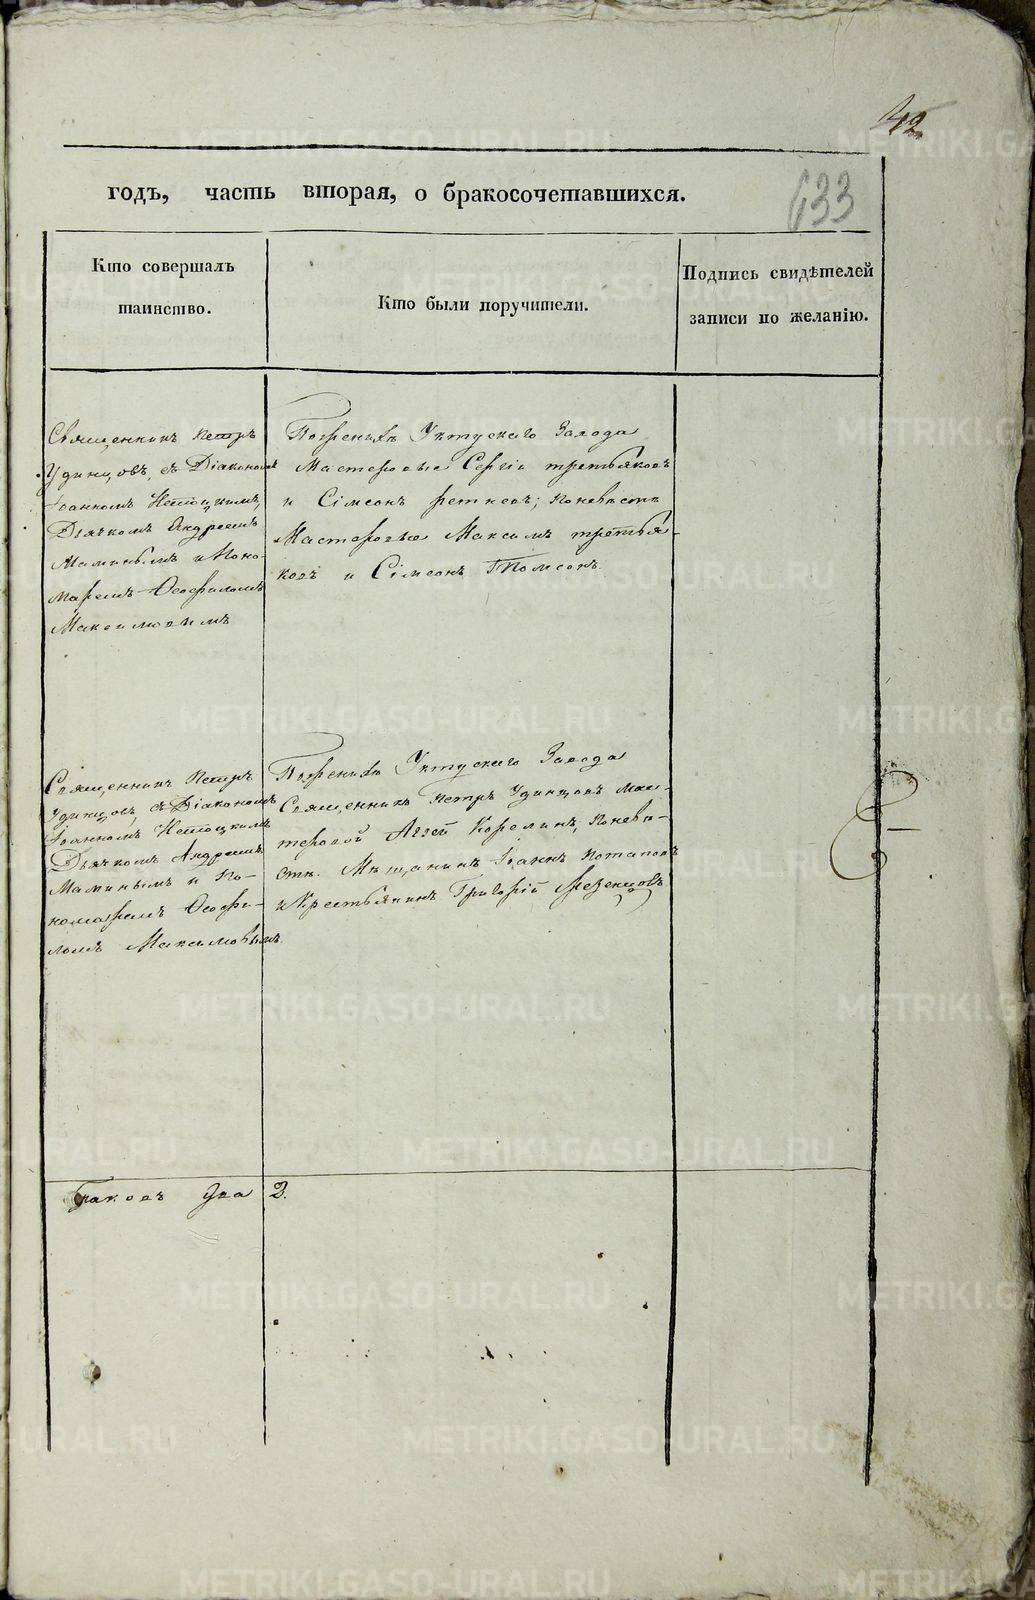 42
годъ, часть вторая, о бракосочетавшихся.
633
Кто совершалъ
таинство.
Кто были поручители.
Подпись свидѣтелей
записи по желанію.
Священникъ Петръ
Удинцовъ, съ Діакономъ
Іоанномъ
Дьячкомъ Андреемъ
Маминымъ и Поно-
маремъ Ѳеофиломъ
Максимовымъ
По женихѣ Уктускаго Завода
Мастеровые Сергій третьяковъ
и Сімеонъ ретневъ; по невѣстѣ
Мастеровые Максимъ третья-
ковъ и Сімеонъ
Священникъ Петръ
Удинцовъ, съ Діакономъ
Іоанномъ
Дьячкомъ Андреемъ
Маминымъ и По-
номаремъ Ѳеофи-
ломъ Максимовымъ
По женихѣ Уктускаго Завода
Священникъ Петръ Удинцовъ мас-
теровой Агѣй Корелинъ, по невѣ-
стѣ. Мѣщанинъ Іоаннъ Потаповъ
и Крестьянинъ Григорій Мезенцовъ
Браковъ два 2.
METRIKI.GASO-URAL.RU